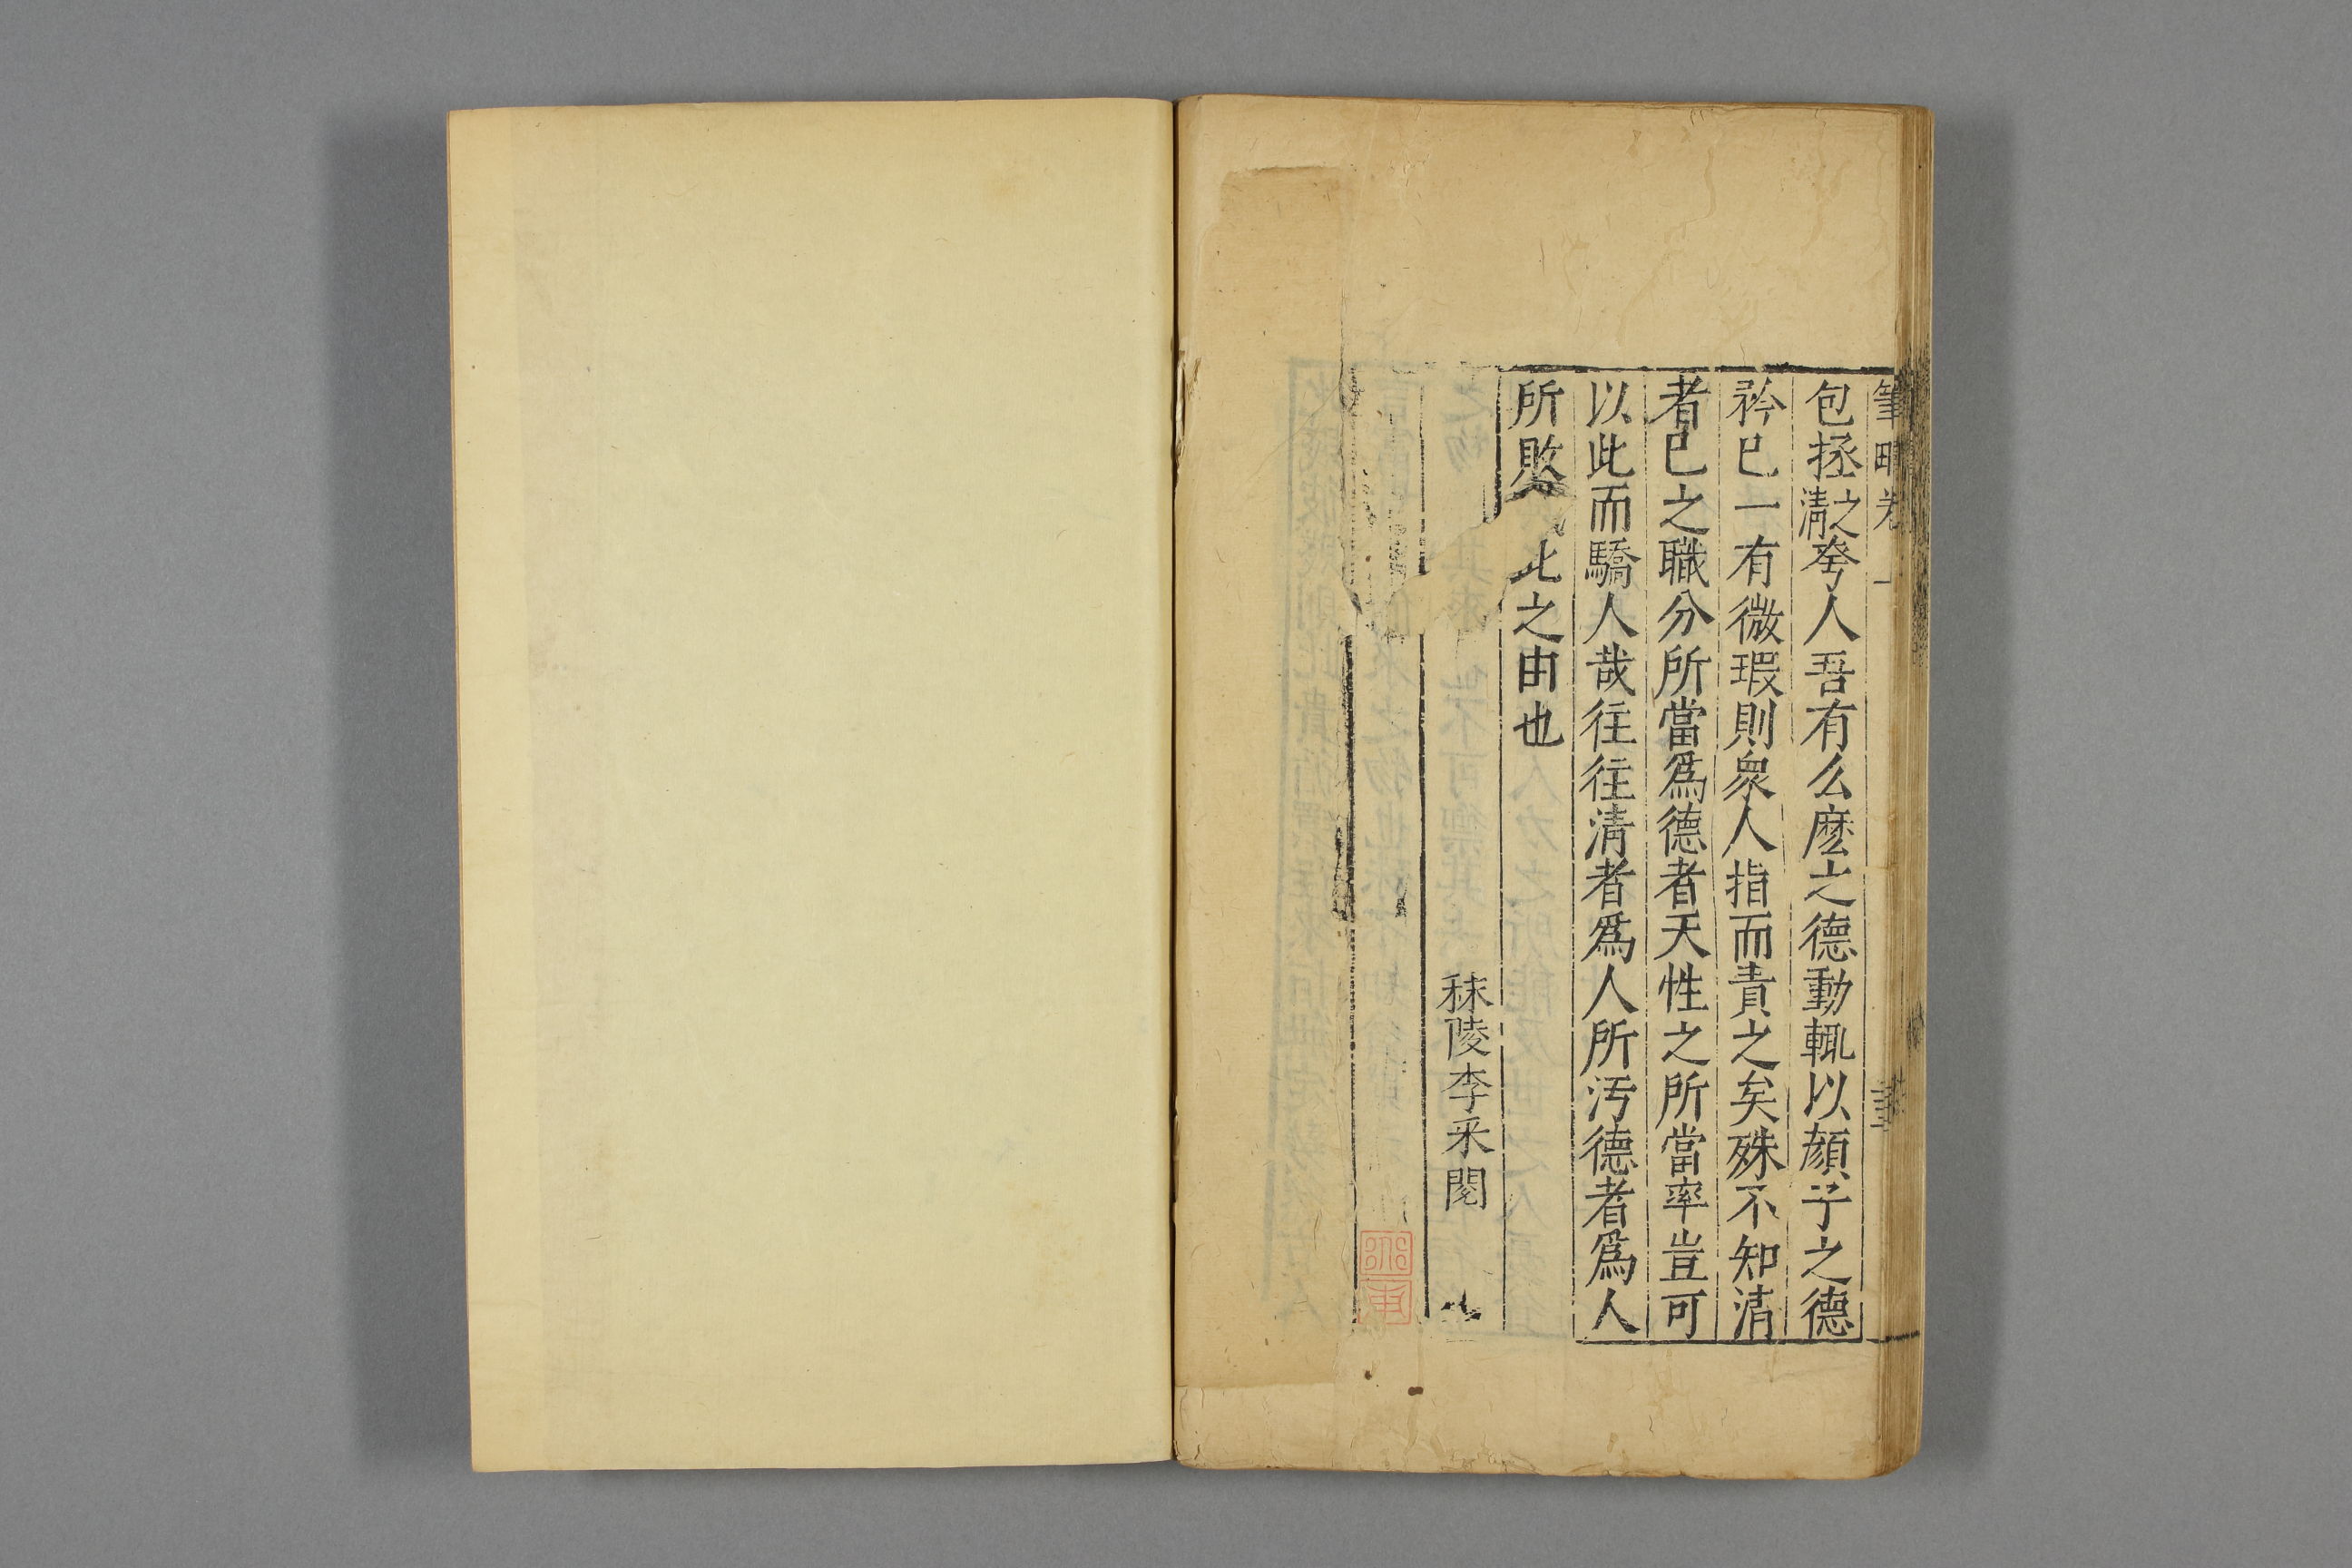 筆疇卷一
包拯之清夸人吾有么麼之德動輒以顔子之德
矜已一有微瑕則衆人指而責之矣殊不知清
者已之職分所當爲德者天性之所當率豈可
以此而驕人哉往往清者爲人所汚德者爲人
所敗 此之由也
秣陵李釆閱